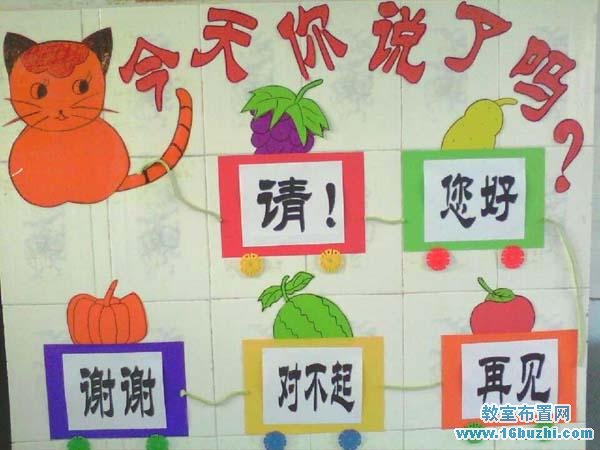 今天你说了吗?
请!
您好
谢谢
对不起
再见
教室布置网
www.16buzhi.com